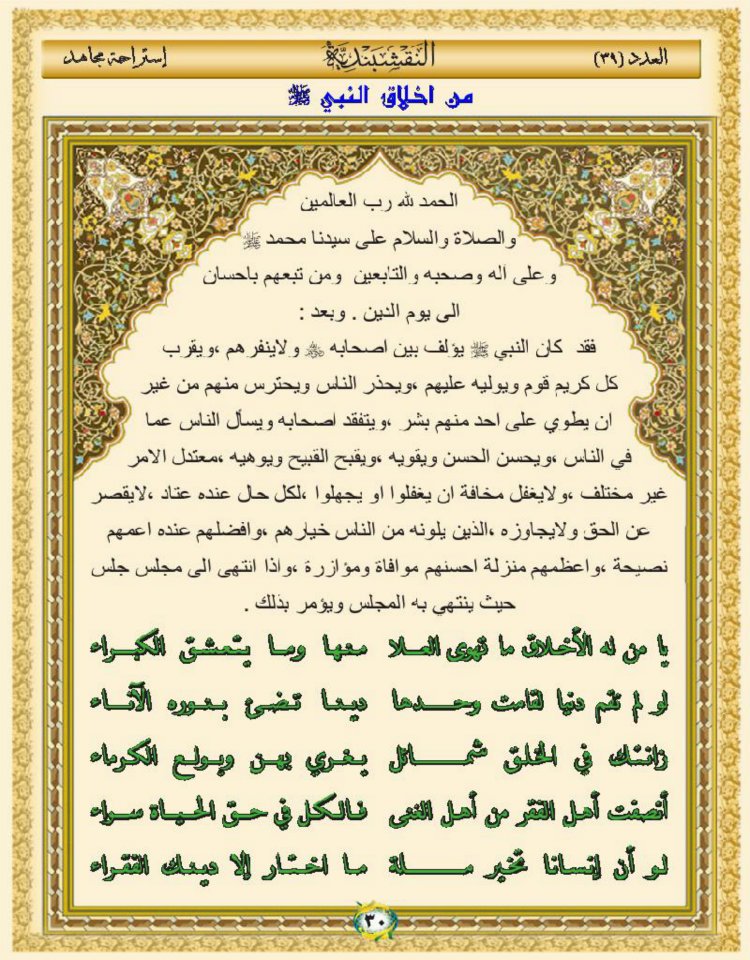 العدد (٣٩)
النقشبندية
إستراحة مجاهد
من اخلاق النبي ﷺ
الحمد لله رب العالمين
والصلاة والسلام على سيدنا محمد ﷺ
وعلى آله وصحبه والتابعين ومن تبعهم باحسان
الى يوم الدين . وبعد :
فقد كان النبي ﷺ يؤلف بين اصحابه ولاينفرهم ،ويقرب
كل كريم قوم ويوليه عليهم ،ويحذر الناس ويحترس منهم من غير
ان يطوي على احد منهم بشر ،ويتفقد اصحابه ويسأل الناس عما
في الناس ،ويحسن الحسن ويقويه ،ويقبح القبيح ويوهيه ،معتدل الامر
غير مختلف ،ولايغفل مخافة ان يغفلوا او يجهلوا ،لكل حال عنده عتاد ،لايقصر
عن الحق ولايجاوزه ،الذين يلونه من الناس خيارهم ،وافضلهم عنده اعمهم
نصيحة ،واعظمهم منزلة احسنهم موافاة ومؤازرة ،واذا انتهى الى مجلس جلس
حيث ينتهي به المجلس ويؤمر بذلك .
يا من له الأخلاق ما تهوى العلا منها وما يتعشق الكبراء
لو لم تقم دنيا لقامت وحدها دينا تضئ بنوره الآناء
زانتك في الخلق شمائل يغري بهن ويولع الكرماء
أنصفت أهل الفقر من أهل الغنى فالكل في حق الحياة سواء
لو أن إنسانا تخير ملة ما اختار إلا دينك الفقراء
٣٠